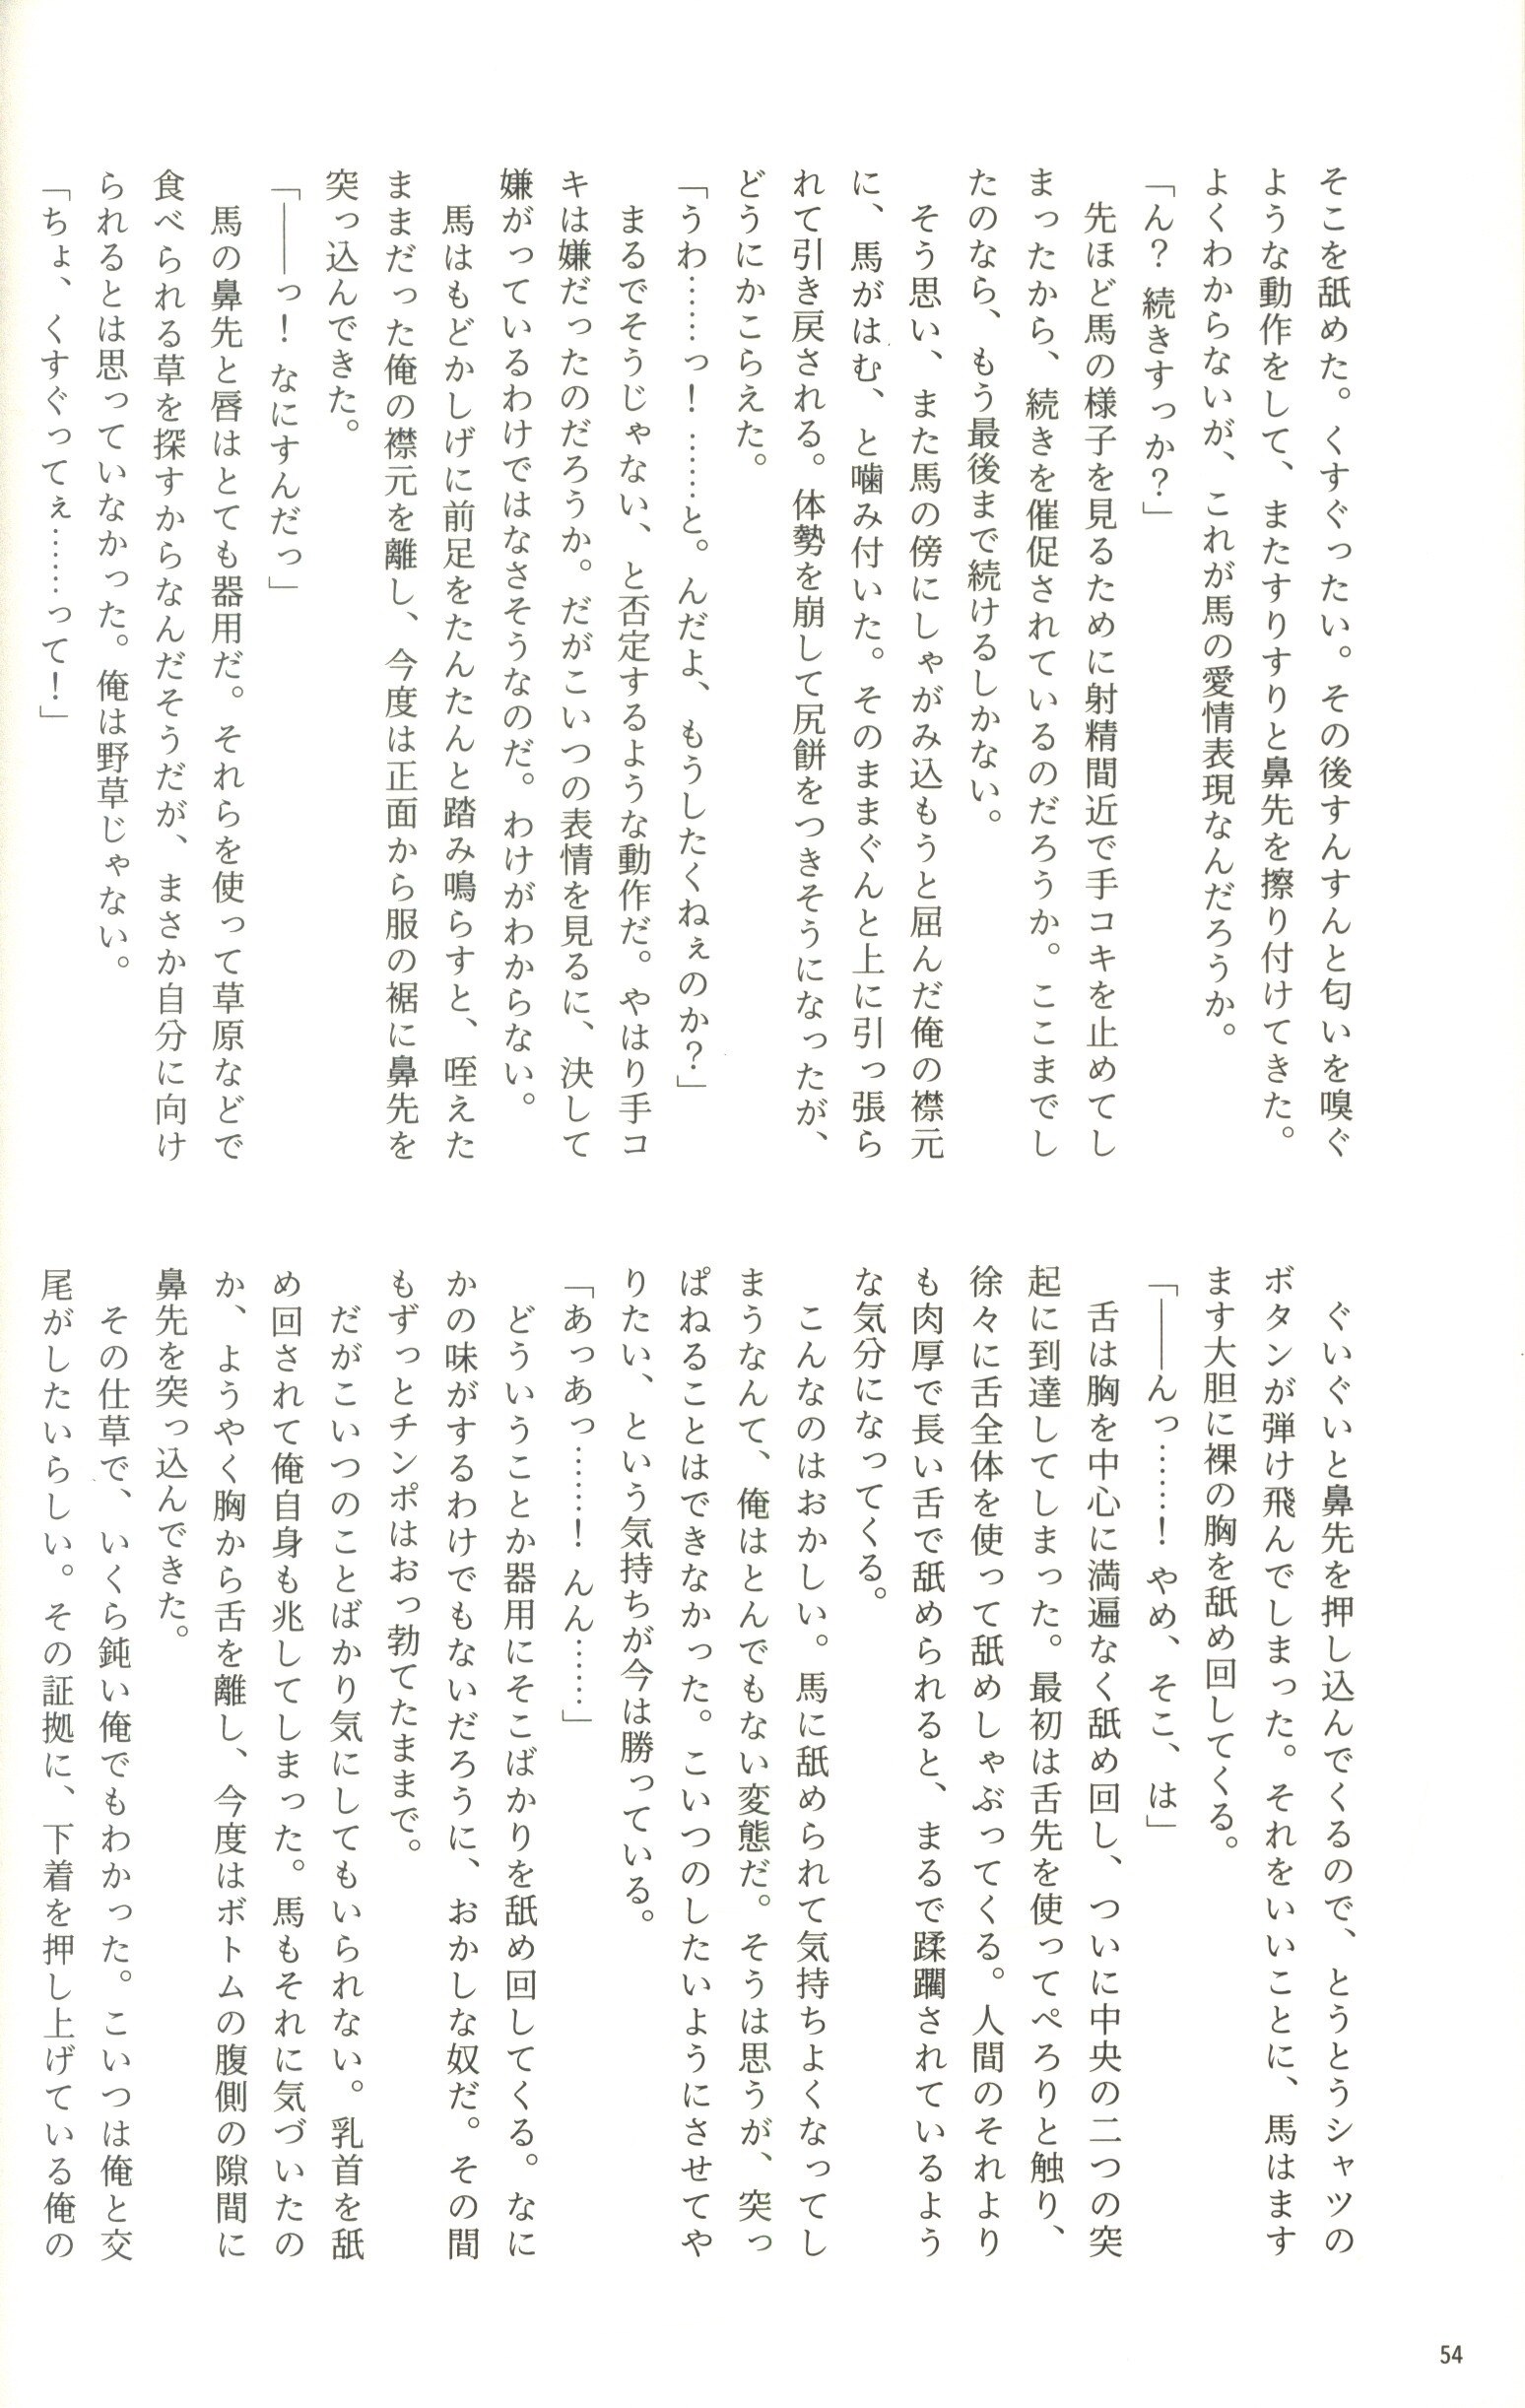 そこを舐めた。くすぐったい。その後すんすんと匂いを嗅ぐ
ような動作をして、またすりすりと鼻先を擦り付けてきた。
よくわからないが、これが馬の愛情表現なんだろうか。
「ん？ 続きすっか？」
先ほど馬の様子を見るために射精間近で手コキを止めてし
まったから、続きを催促されているのだろうか。ここまでし
たのなら、もう最後まで続けるしかない。
そう思い、また馬の傍にしゃがみ込もうと屈んだ俺の襟元
に、馬がはむ、と噛み付いた。そのままぐんと上に引っ張ら
れて引き戻される。体勢を崩して尻餅をつきそうになったが、
どうにかこらえた。
「うわ……っ！ ……と。んだよ、もうしたくねぇのか？」
まるでそうじゃない、と否定するような動作だ。やはり手コ
キは嫌だったのだろうか。だがこいつの表情を見るに、決して
嫌がっているわけではなさそうなのだ。わけがわからない。
馬はもどかしげに前足をたんたんと踏み鳴らすと、咥えた
ままだった俺の襟元を離し、今度は正面から服の裾に鼻先を
突っ込んできた。
「――っ！ なにすんだっ」
馬の鼻先と唇はとても器用だ。それらを使って草原などで
食べられる草を探すからなんだそうだが、まさか自分に向け
られるとは思っていなかった。俺は野草じゃない。
「ちょ、くすぐってぇ……って！」
ぐいぐいと鼻先を押し込んでくるので、とうとうシャツの
ボタンが弾け飛んでしまった。それをいいことに、馬はます
ます大胆に裸の胸を舐め回してくる。
「――んっ……！ やめ、そこ、は」
舌は胸を中心に満遍なく舐め回し、ついに中央の二つの突
起に到達してしまった。最初は舌先を使ってぺろりと触り、
徐々に舌全体を使って舐めしゃぶってくる。人間のそれより
も肉厚で長い舌で舐められると、まるで蹂躙されているよう
な気分になってくる。
こんなのはおかしい。馬に舐められて気持ちよくなってし
まうなんて、俺はとんでもない変態だ。そうは思うが、突っ
ぱねることはできなかった。こいつのしたいようにさせてや
りたい、という気持ちが今は勝っている。
「あっあっ……！ んん……」
どういうことか器用にそこばかりを舐め回してくる。なに
かの味がするわけでもないだろうに、おかしな奴だ。その間
もずっとチンポはおっ勃てたままで。
だがこいつのことばかり気にしてもいられない。乳首を舐
め回されて俺自身も兆してしまった。馬もそれに気づいたの
か、ようやく胸から舌を離し、今度はボトムの腹側の隙間に
鼻先を突っ込んできた。
その仕草で、いくら鈍い俺でもわかった。こいつは俺と交
尾がしたいらしい。その証拠に、下着を押し上げている俺の
54